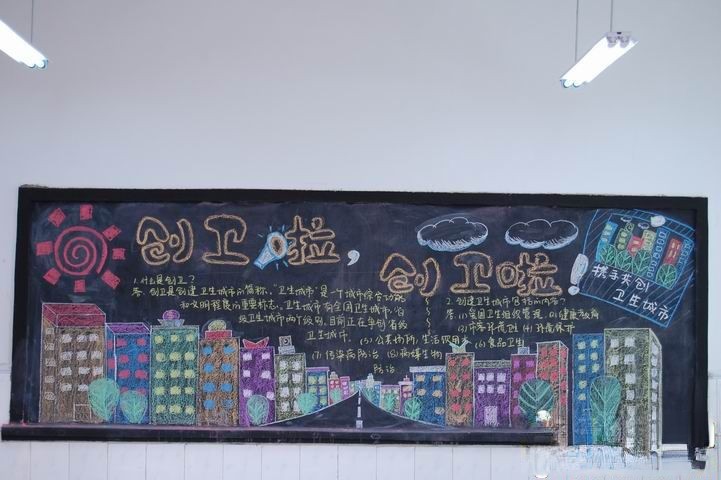 创卫啦,
创卫啦!
1.什么是创卫?
答:创卫是创建卫生城市的简称,"卫生城市"是一个城市综合功能
和文明程度的重要标志。卫生城市有全国卫生城市、省
级卫生城市两个级别,目前正在争创省级
卫生城市.
2.创建卫生城市包括的内容?
答:(1)爱国卫生组织管理 (2)健康教育
(3)市容环境卫生 (4)环境保护
(5)公共场所,生活饮用水
(6)食品卫生
(7)传染病防治 (8)病媒生物
防治
携手共创
卫生城市